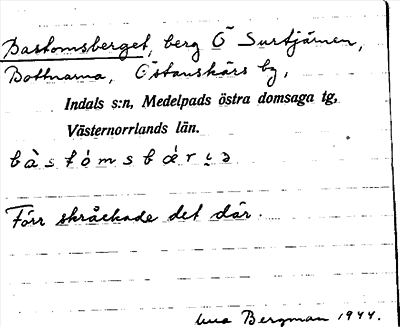 Bastomsberget, berg Ö Surtjärnen,
Bottnarna, Östanskärs by,
Indals s:n, Medelpads östra domsaga tg,
Västernorrlands län.
Förr skråckade det där.
Bergman 1944.